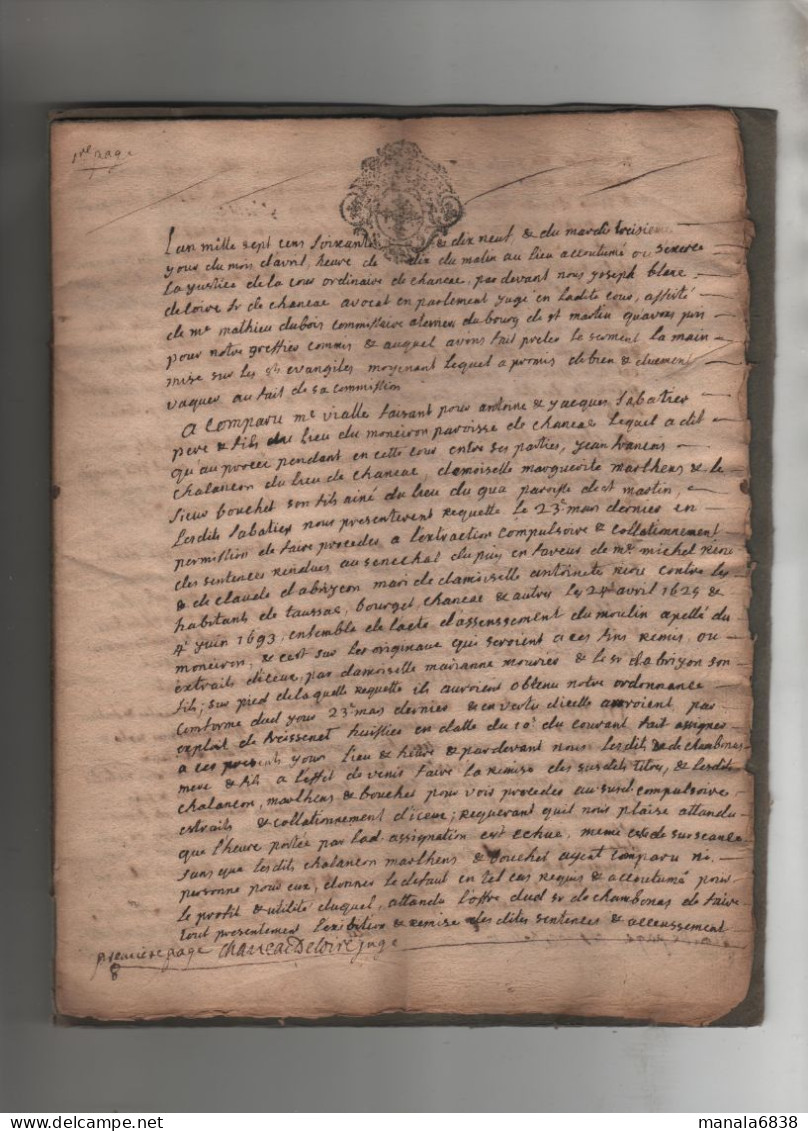 1re page
L'an mille sept cens soixante & dix neuf & du mardi troisieme
jour du mois d'avril, heure de dix du matin au lieu accoutumé ou s'exerce
la justice de la cour ordinaire de chaneac, par devant nous joseph
deloire sr de chaneac avocat en parlement juge en ladite cour, assisté
de me mathieu dubois commissaire du bourg de st martin
pour notre greffier commis & auquel avons fait preter le serment la main
mise sur les sts evangiles moyenant lequel a promis de bien & duement
vaquer au fait de sa commission
A comparu me vialle faisant pour antoine & jacques sabatier
pere & fils du lieu du moneiron paroisse de chaneac lequel a dit
qu'au procés pendant en cette cour entre ses parties, jean francois
chalancon du lieu de chaneac, damoiselle marguerite marthens & le
sieur bouchet son fils ainé du lieu du gua paroisse de st martin,
lesdits sabatier nous presenterent requette le 23e mars dernier en
permission de faire proceder a l'extraction compulsoire & collationnement
des sentences rendues au senechal du puy en faveur de me michel
& de claude dabrizon mari de damoiselle antoinete contre les
habitants de taussac, bourget, chaneac & autres les avril 1625 &
4e juin 1693, ensemble de lacte d'asenssement du moulin apellé du
moneiron, & c'est sur les originaux qui seroient a ces fins remis, ou
extraits d'iceux, par damoiselle marianne mourier & le sr dabrizon son
fils; sur pied de laquelle requette ils auroient obtenu notre ordonnance
conforme dud jour 23e mars dernier & en vertu d'icelle auroient par
exploit de huissier en datte du 10e du courant fait assigner
a ces presents jour lieu & heure & par devant nous lesdits de chambonas
mere & fils a l'effet de venir faire la remise des susdits titres, & lesdits
chalancon, marthens & bouchet pour voir proceder au susd compulsoire
extraits & collationnement d'iceux; requerant quil nous plaise attandu
que l'heure portée par lad assignation est echue, meme celle de surseance
sans que lesdits chalancon marthens & bouchet ayent comparu ni
personne pour eux, donner le defaut en tel cas requis & accoutumé pour
le profit & utilité duquel, attandu l'offre dud sr de chambonas de faire
tout presentement l'exibition & remise des dites sentences & accenssement
premiere page chaneac Deloire juge
manala6838